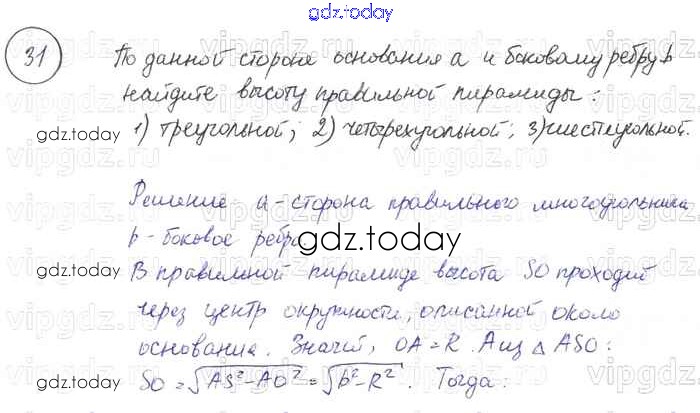 gdz.today
31 По данной стороне основания a и боковому ребру b
найдите высоту правильной пирамиды:
gdz.today 1) треугольной; 2) четырехугольной; 3) шестиугольной.
Решение a - сторона правильного многоугольника
b - боковое ребро
gdz.today
gdz.today В правильной пирамиде высота SO проходит
через центр окружности, описанной около
основания. Значит, OA = R. А из △ ASO:
gdz.today SO = √AS² - AO² = √b² - R². Тогда: